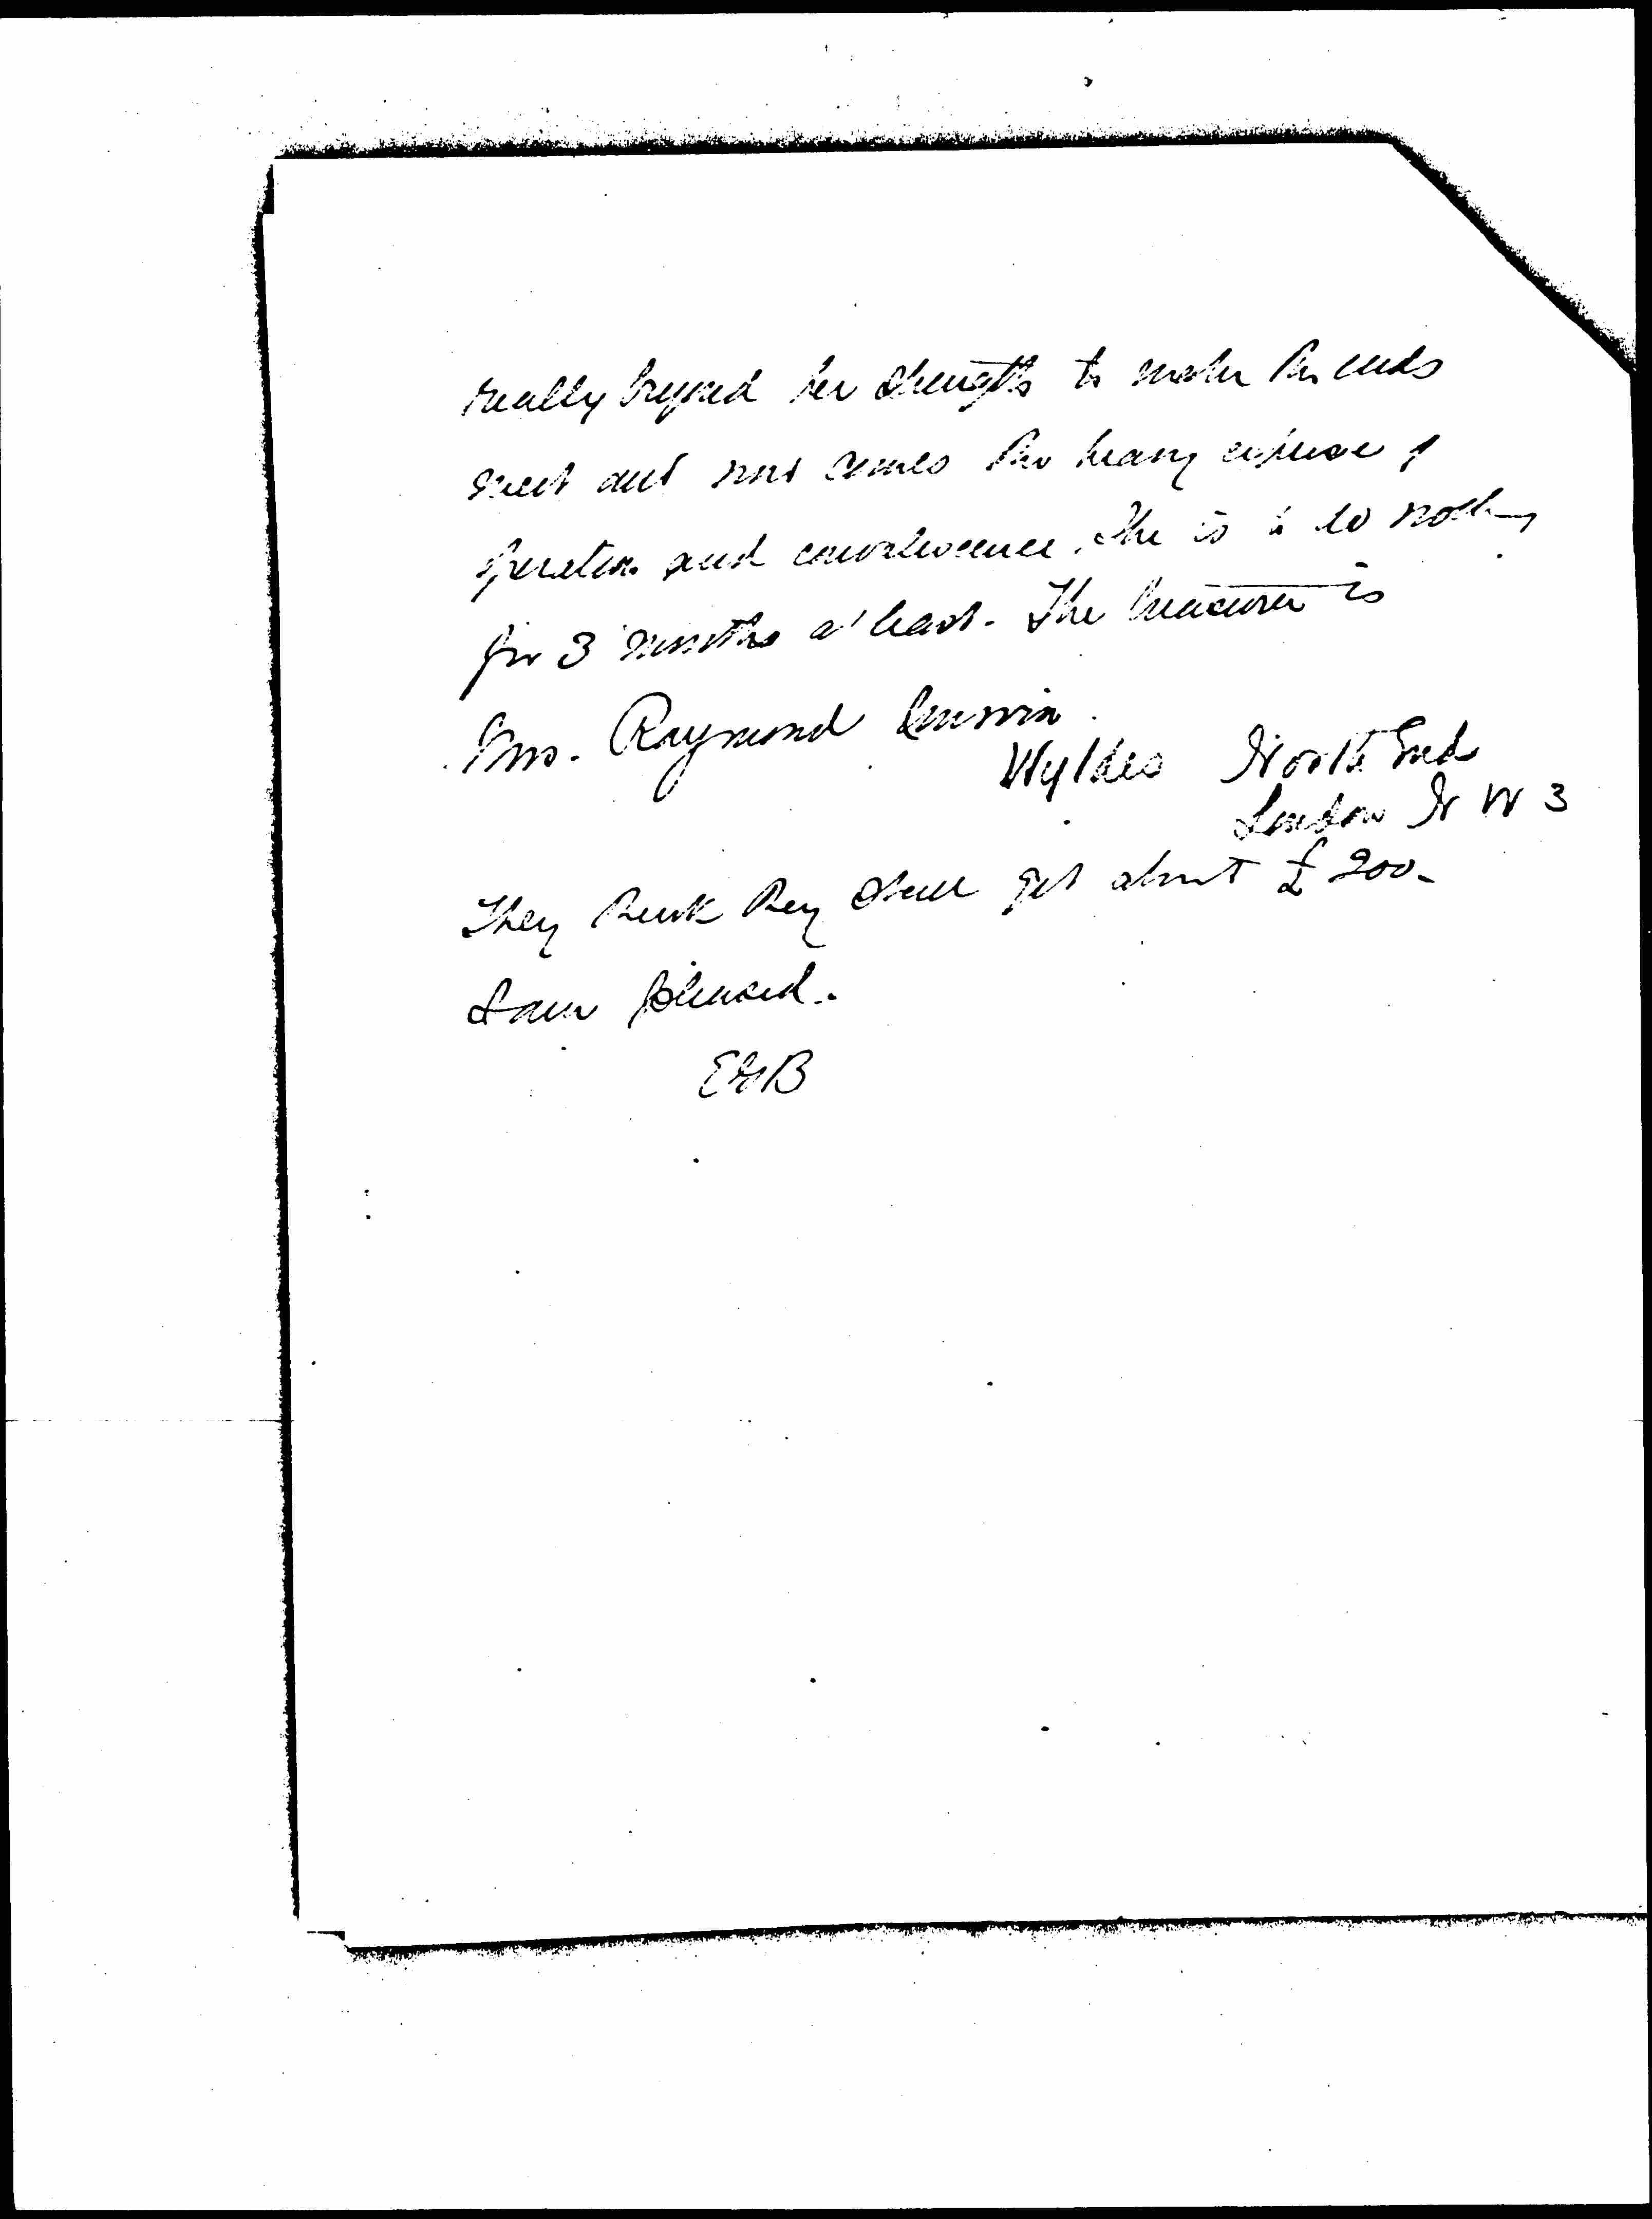 really beyond her strength to make the ends
meet and now comes the heavy expense of
operation and convalescence. She is to do nothing
for 3 months at least. The treasurer is
Mrs. Raymond Unwin.
Wyldes North End
London N W 3
They think they shall get about £200-
I am pleased.
EGB